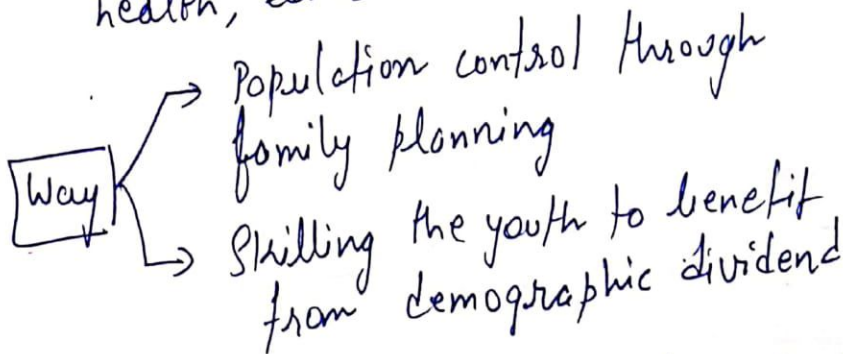 health,
Way
Population control through
family planning
Skilling the youth to benefit
from demographic dividend